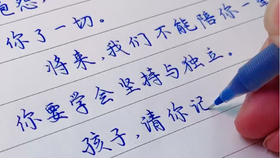 你了一切。
将来，我们不能陪你一
你要学会坚持与独立。
孩子，请你记